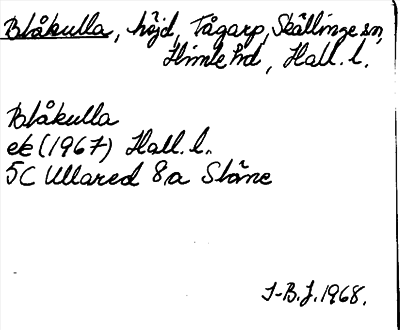 Blåkulla, höjd, Tågarp, Skällinge sn,
Himle hd, Hall. l.
Blåkulla
ek (1967) Hall. l.
5C Ullared 8a Skåne
J-B.J. 1968.